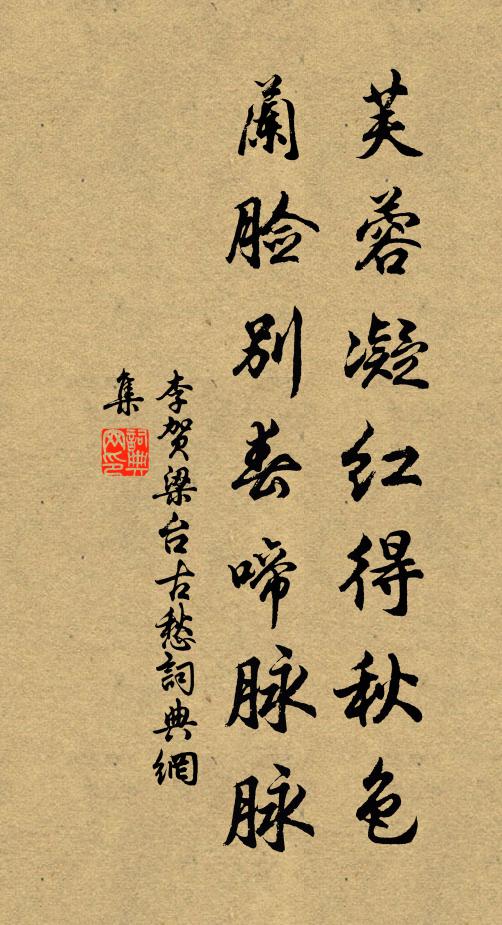 芙蓉凝红得秋色
蘭脸别春啼脉脉
李贺梁台古愁詞典網
集
詞典
网印